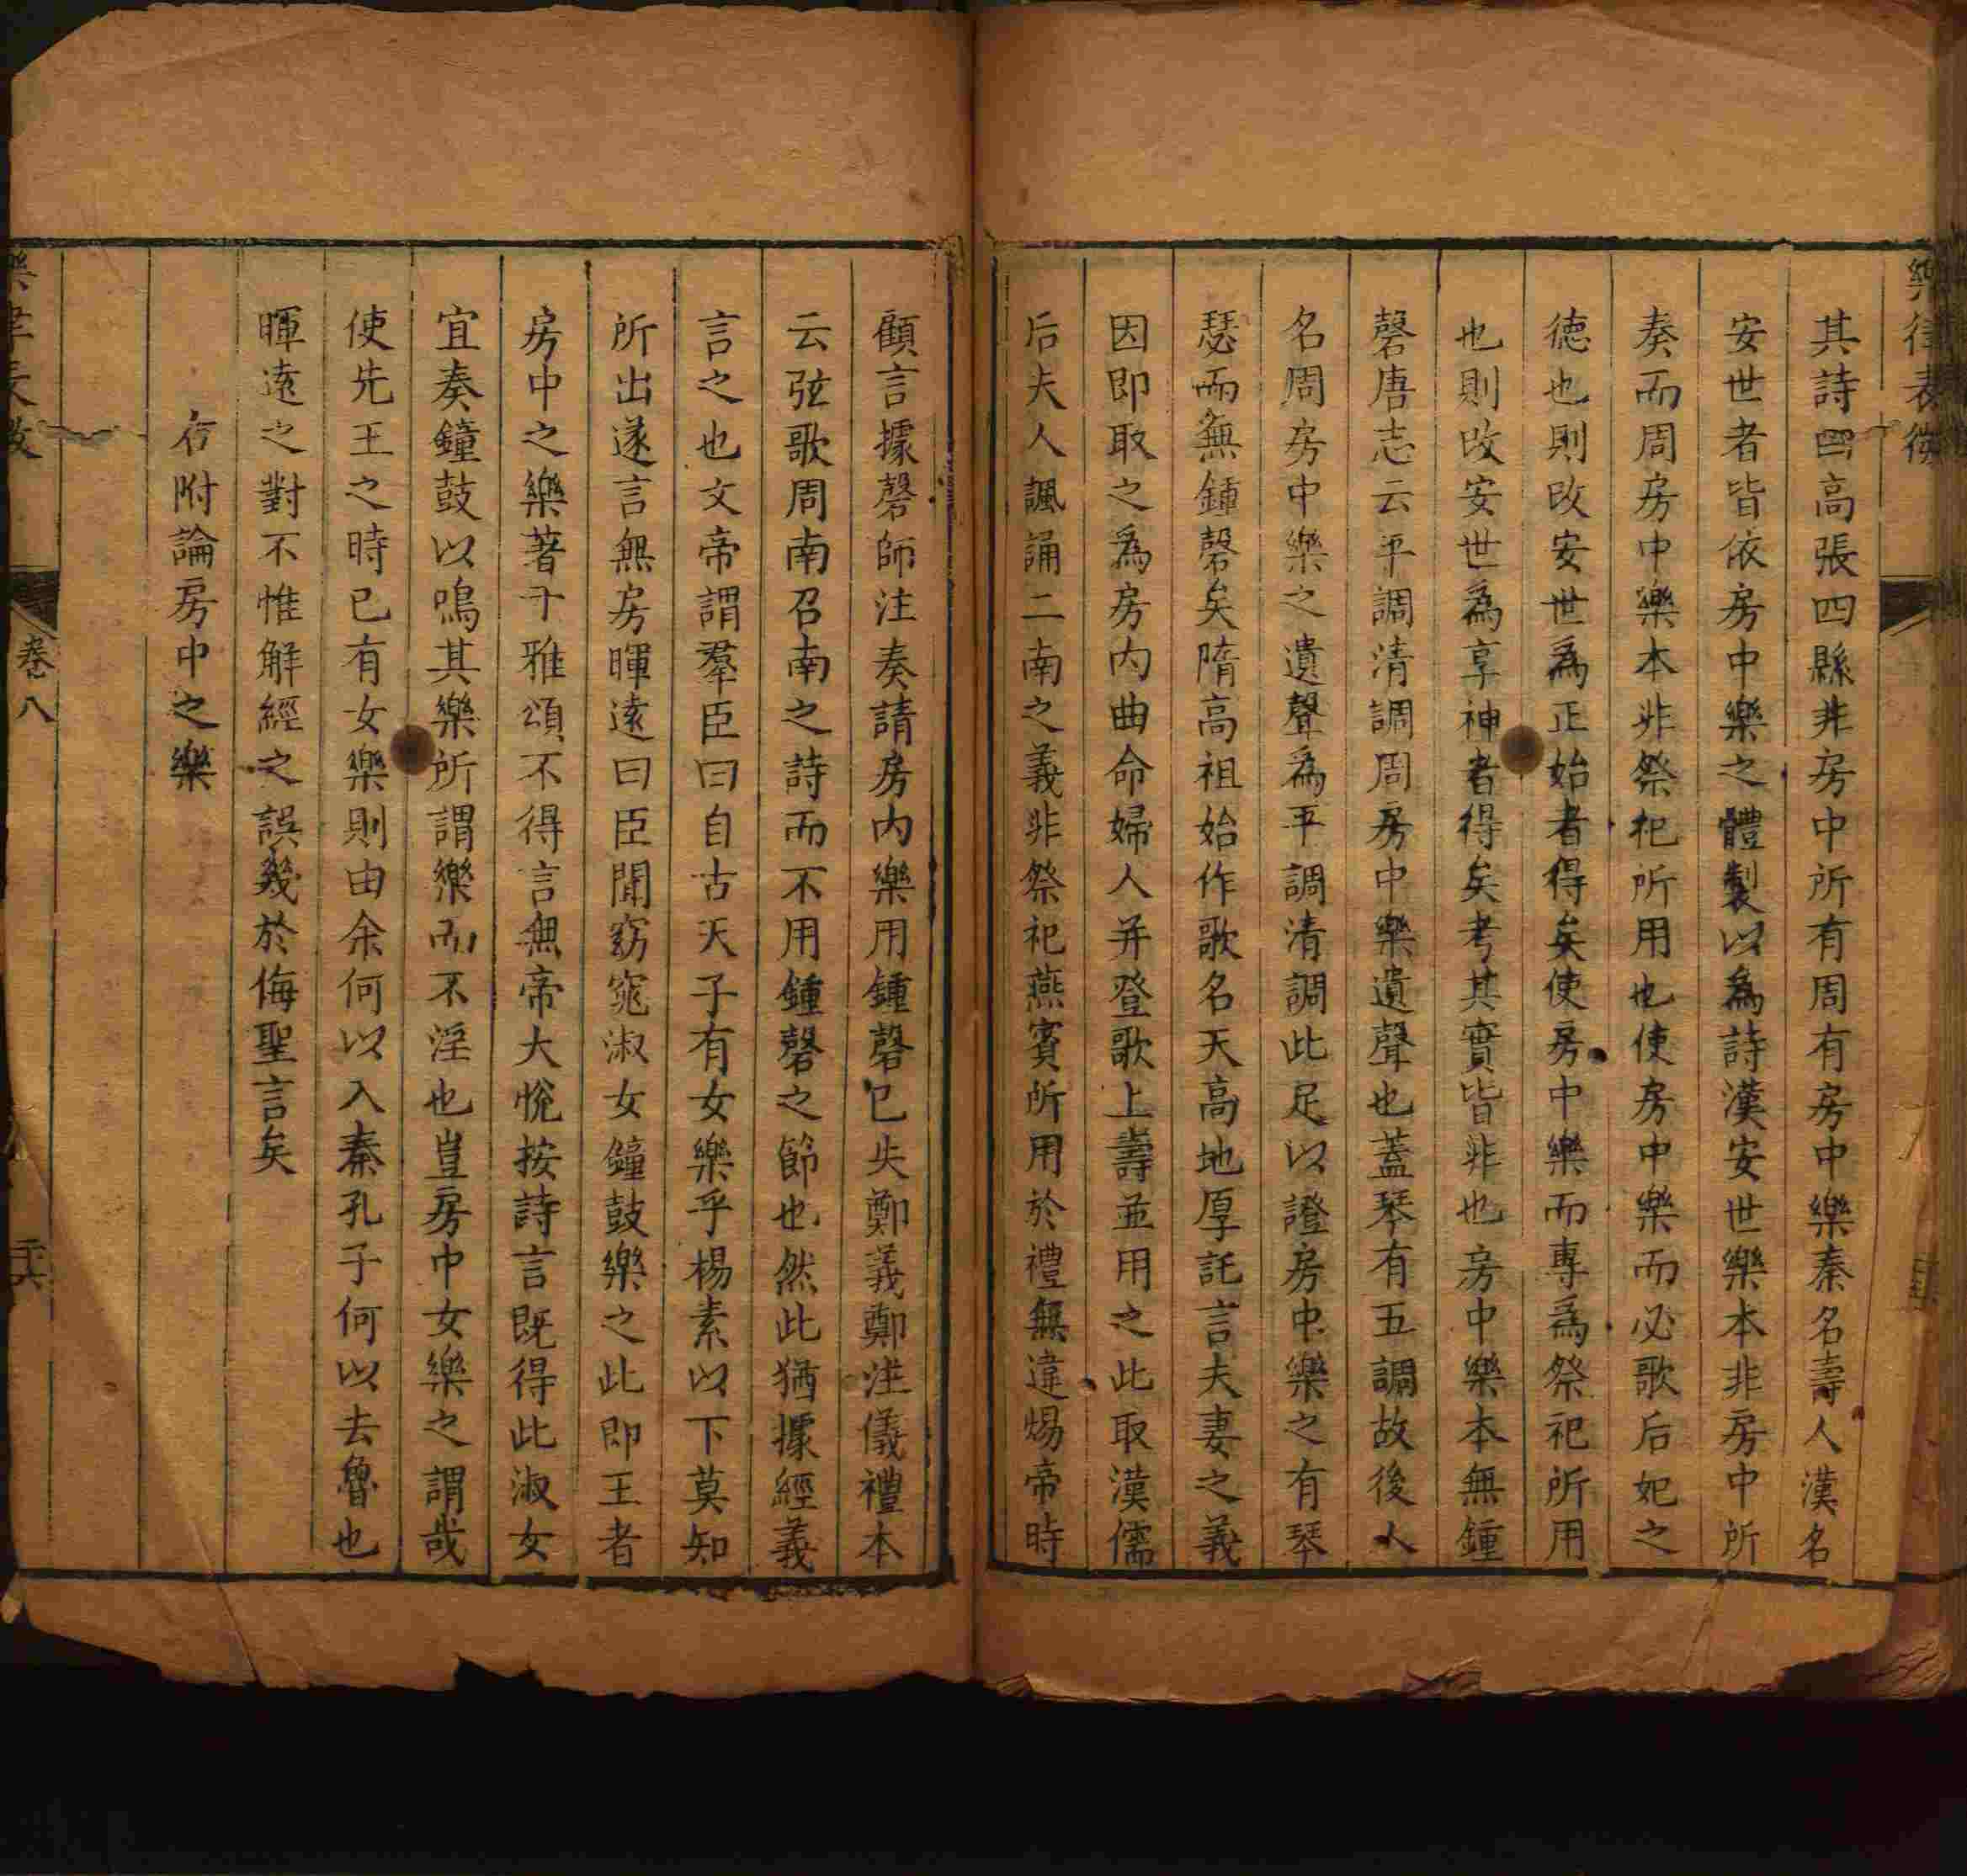 樂律表微
其詩曰高張四縣非房中所有周有房中樂秦名壽人漢名
安世者皆依房中樂之體製以為詩漢安世樂本非房中所
奏而周房中樂本非祭祀所用也使房中樂而必歌后妃之
德也則改安世為正始者得矣使房中樂而專為祭祀所用
也則改安世為享神者得矣考其實皆非也房中樂本無鍾
磬唐志云平調清調周房中樂遺聲也蓋琴有五調故後人
名周房中樂之遺聲為平調清調此足以證房中樂之有琴
瑟而無鍾磬矣隋高祖始作歌名天高地厚託言夫妻之義
因即取之為房内曲命婦人并登歌上壽並用之此取漢儒
后夫人諷誦二南之義非祭祀燕賓所用於禮無違煬帝時
顧言據磬師注奏請房内樂用鍾磬已失鄭義鄭注儀禮本
云弦歌周南召南之詩而不用鍾磬之節也然此猶據經義
言之也文帝謂羣臣曰自古天子有女樂乎楊素以下莫知
所出遂言無房暉遠曰臣聞窈窕淑女鐘鼓樂之此即王者
房中之樂著于雅頌不得言無帝大悅按詩言既得此淑女
宜奏鐘鼓以鳴其樂所謂樂而不淫也豈房中女樂之謂哉
使先王之時已有女樂則由余何以入秦孔子何以去魯也
暉遠之對不惟解經之誤幾於侮聖言矣
右附論房中之樂
卷八
二六